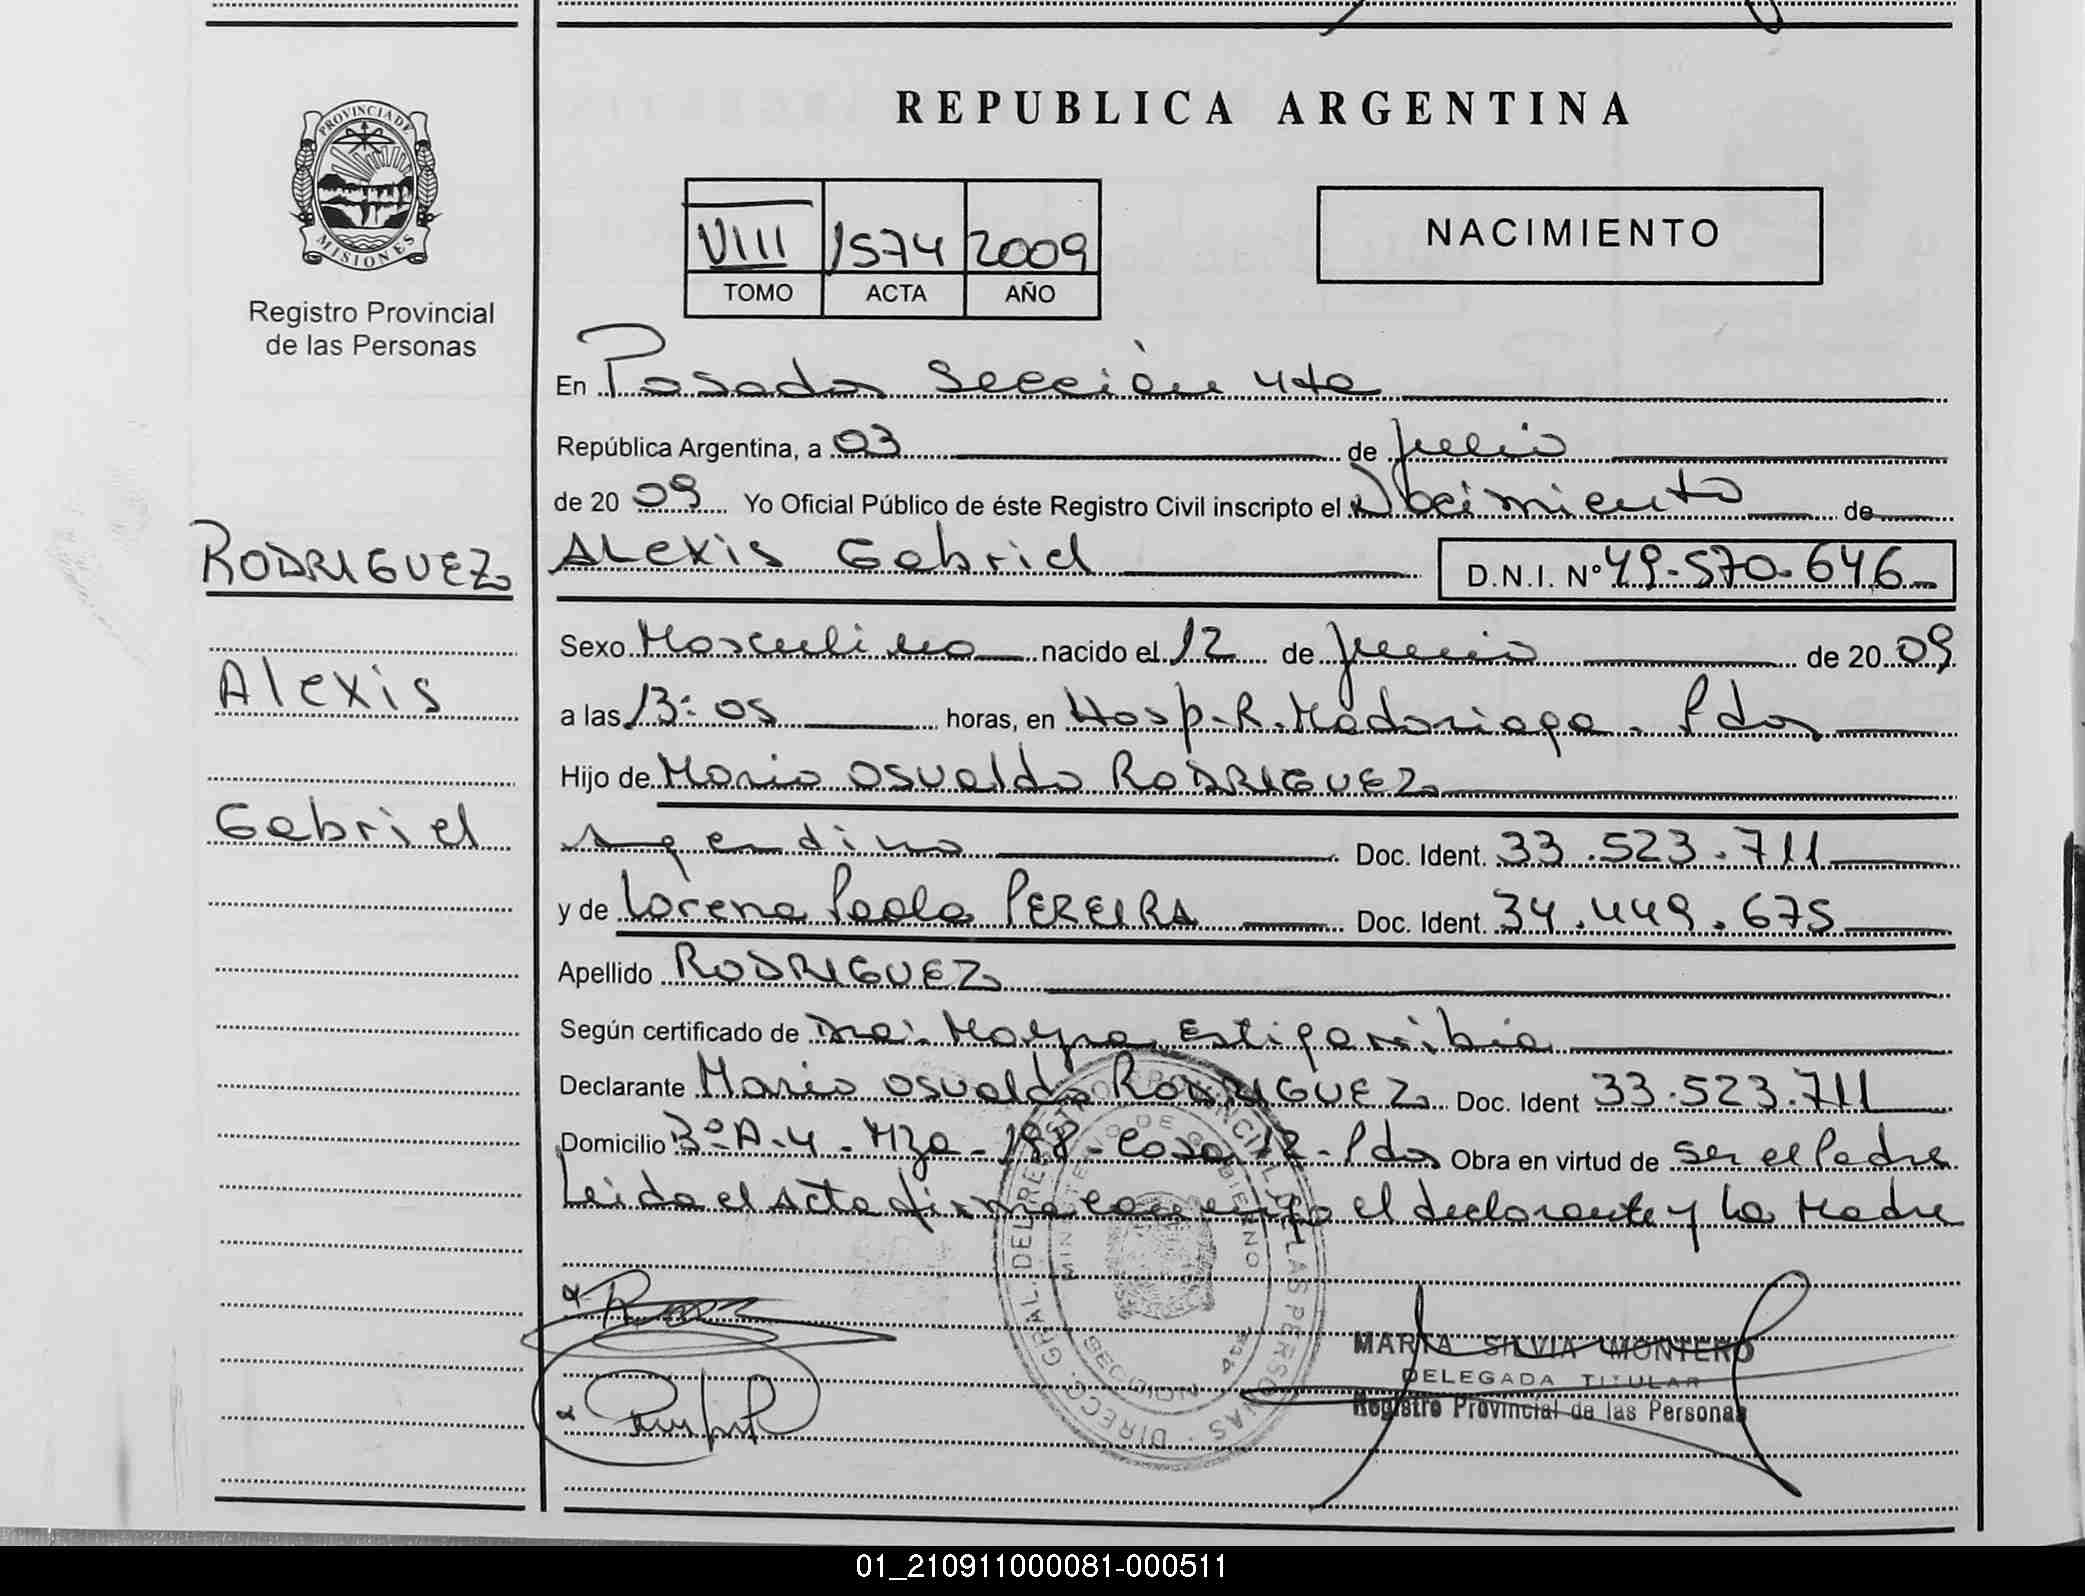 PROVINCIA DE
MISIONES
Registro Provincial
de las Personas
RODRIGUEZ
Alexis
Gabriel
REPUBLICA ARGENTINA
VIII 1574 2009
TOMO ACTA AÑO
NACIMIENTO
En Posadas Sección 4ta
República Argentina, a 03 de julio
de 20 09 Yo Oficial Público de éste Registro Civil inscripto el Nacimiento de
Alexis Gabriel D.N.I. Nº 49.570.646
Sexo Masculino nacido el 12 de junio de 20 09
a las 13:05 horas, en Hosp. R. Madariaga. Pdas
Hijo de Mario Osvaldo RODRIGUEZ
argentino Doc. Ident. 33.523.711
y de Lorena Paola PEREIRA Doc. Ident. 34.449.675
Apellido RODRIGUEZ
Según certificado de Dra. Mayra Estigarribia
Declarante Mario Osvaldo RODRIGUEZ Doc. Ident 33.523.711
Domicilio Bº A-4 - Mza - 198 - Casa 12 - Pdas Obra en virtud de ser el Padre
Leida el Acta firma conmigo el declarante y la Madre
DIRECC. GRAL. DEL REGISTRO PROVINCIAL DE LAS PERSONAS
MINISTERIO DE GOBIERNO
SECCION 4ta
MARTA SILVIA MONTERO
DELEGADA TITULAR
Registro Provincial de las Personas
01_210911000081-000511